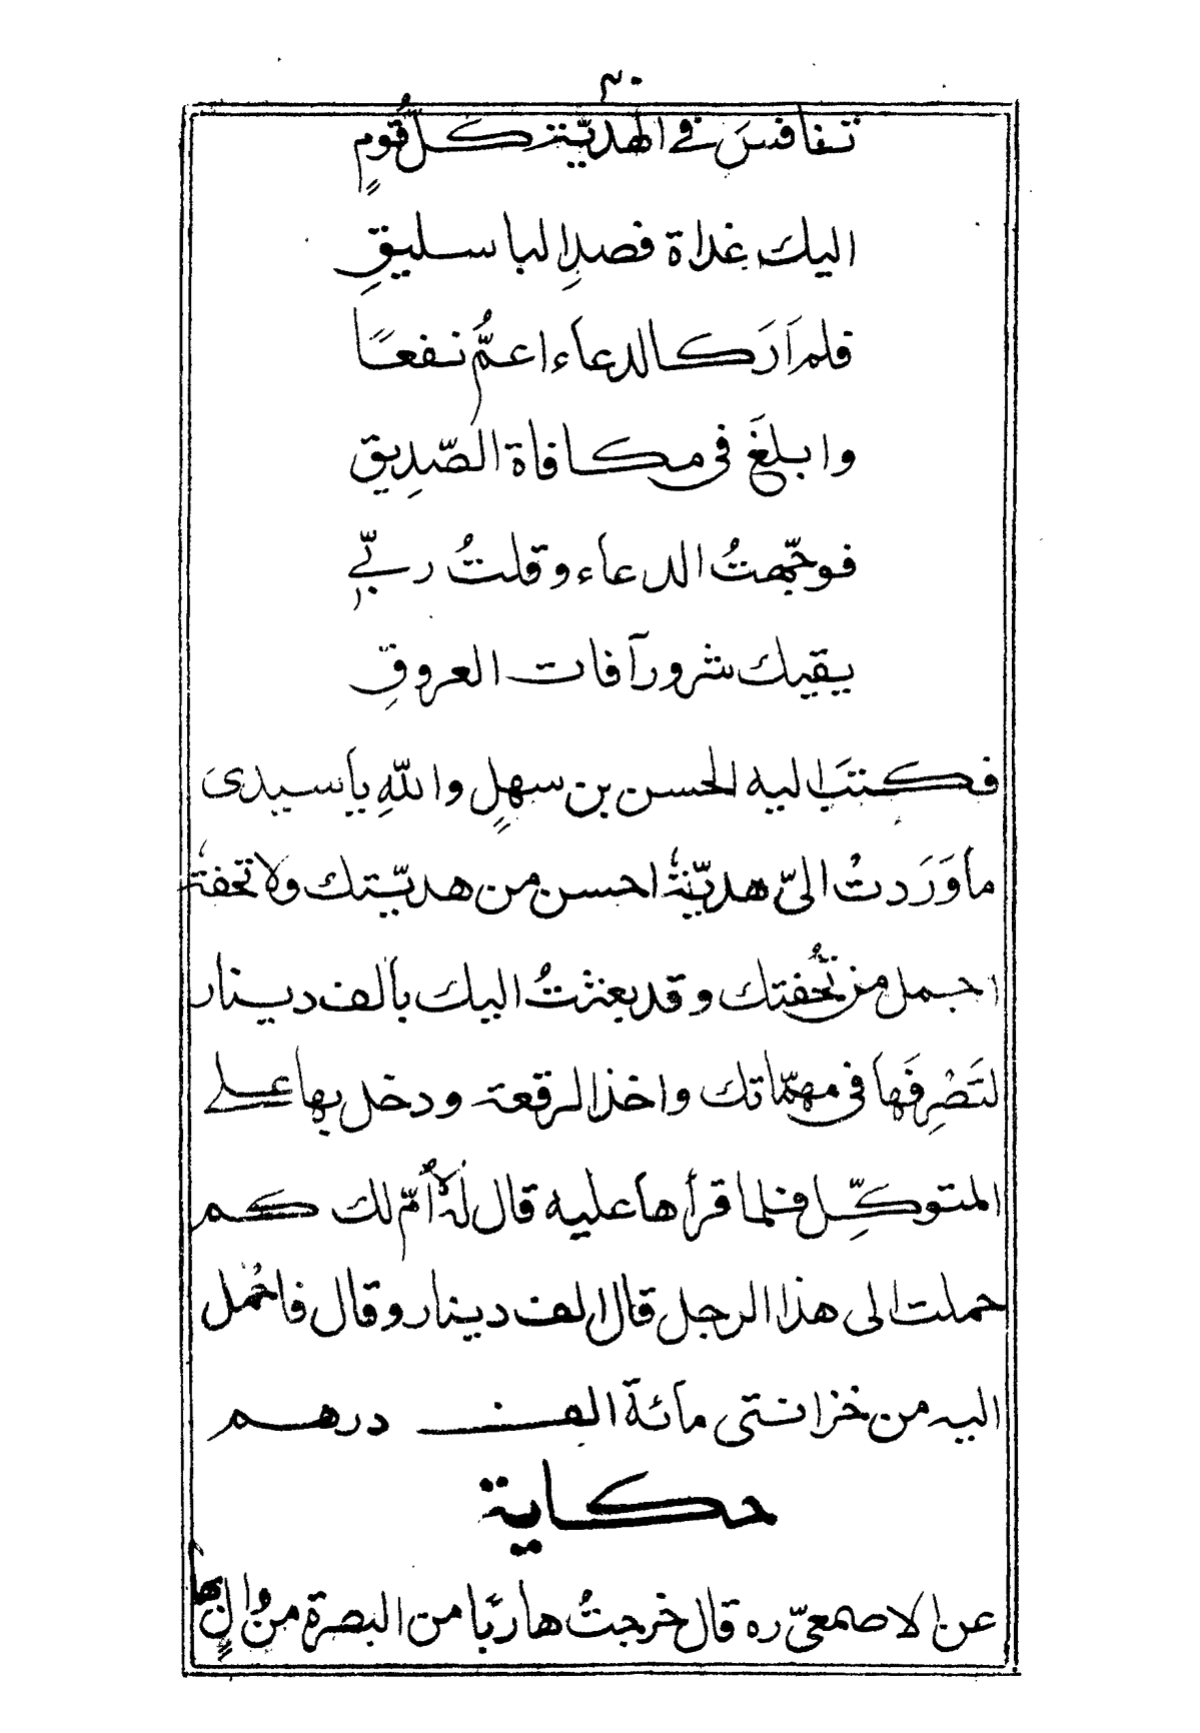 ٣٠
تنافس في الهديّة كلُّ قومٍ
اليك غداة فصدِ الباسليقِ
فلم اَرَ كالدعاء اعمُّ نفعًا
وابلغَ فى مكافاة الصّدِيق
فوجّهتُ الدعاء وقلتُ ربّي
يقيك شرور آفات العروقِ
فكتبَ اليه الحسن بن سهلٍ واللهِ يا سيدى
ما وَرَدتْ الىّ هديّةٌ احسن من هديّتك ولا تحفةٌ
اجمل من تُحفتك وقد بعثتُ اليك بالف دينار
لتَصْرِفَها فى مهمّاتك واخذ الرقعة ودخل بها على
المتوكّلِ فلما قرأها عليه قال لهُ لا اُمّ لك كم
حملت الى هذا الرجل قال الف دينار وقال فاحْمل
اليه من خزانتى مائة الف درهم
حكاية
عن الاصمعيّ ره قال خرجتُ هاربًا من البصرة من والٍ بها